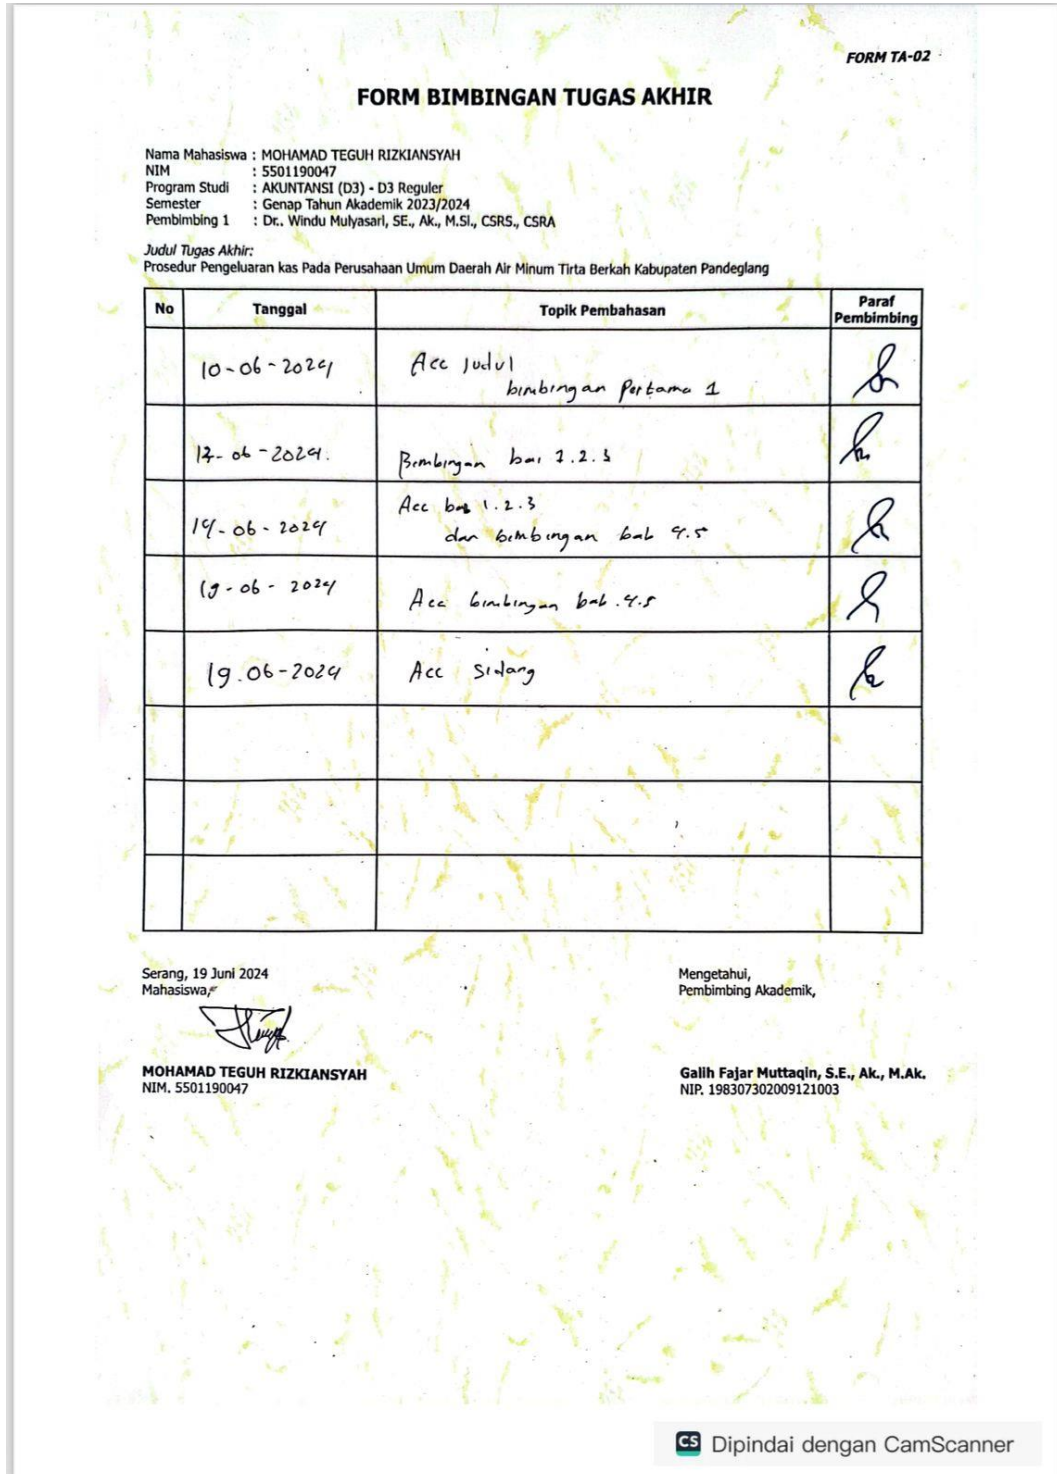 FORM TA-02
FORM BIMBINGAN TUGAS AKHIR
Nama Mahasiswa : MOHAMAD TEGUH RIZKIANSYAH
NIM : 5501190047
Program Studi : AKUNTANSI (D3) - D3 Reguler
Semester : Genap Tahun Akademik 2023/2024
Pembimbing 1 : Dr.. Windu Mulyasari, SE., Ak., M.SI., CSRS., CSRA
Judul Tugas Akhir:
Prosedur Pengeluaran kas Pada Perusahaan Umum Daerah Air Minum Tirta Berkah Kabupaten Pandeglang
No Tanggal Topik Pembahasan Paraf Pembimbing
10-06-2024 Acc Judul
bimbingan Pertama 1
12-06-2024. Bimbingan bab 1.2.3
Acc bab 1.2.3
14-06-2024 dan bimbingan bab 4.5
19-06-2024 Acc bimbingan bab.4.5
19.06-2024 Acc Sidang
Serang, 19 Juni 2024
Mahasiswa,
MOHAMAD TEGUH RIZKIANSYAH
NIM. 5501190047
Mengetahui,
Pembimbing Akademik,
Galih Fajar Muttaqin, S.E., Ak., M.Ak.
NIP. 198307302009121003
CS Dipindai dengan CamScanner